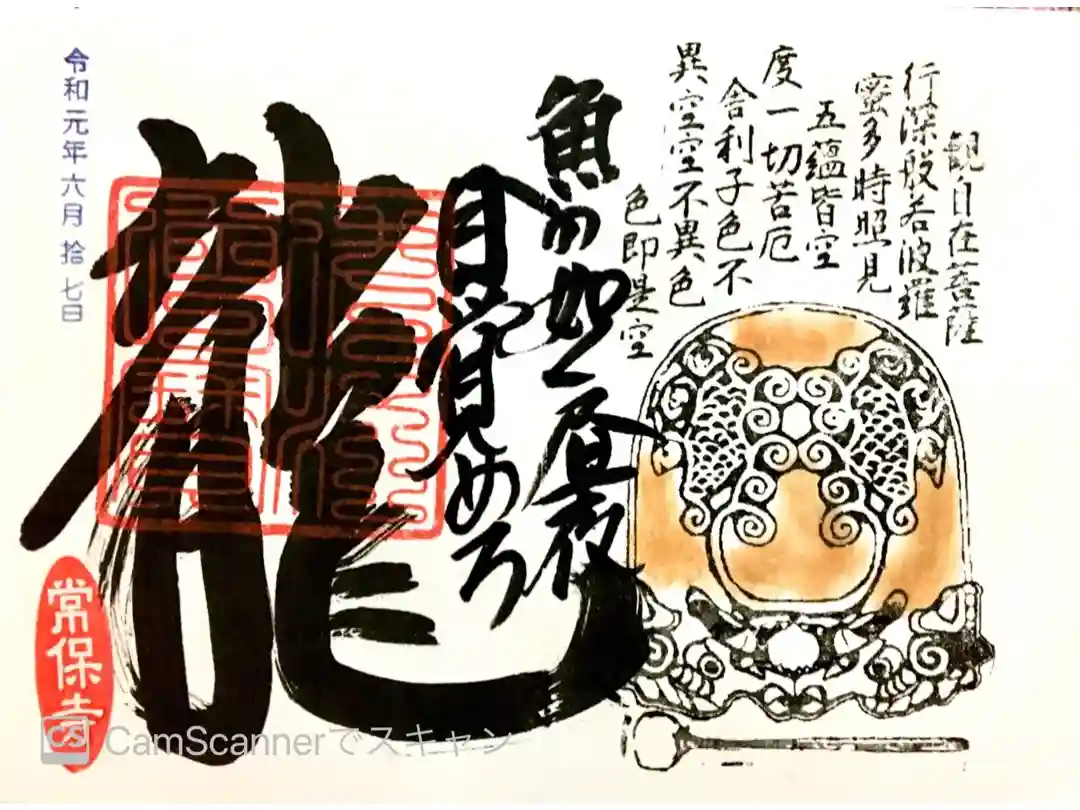 観自在菩薩
行深般若波羅
蜜多時照見
五蘊皆空
度一切苦厄
舎利子色不
異空空不異色
色即是空
魚の如く昼夜
目覚めろ
龍
令和元年六月拾七日
常保寺
CS CamScannerでスキャン